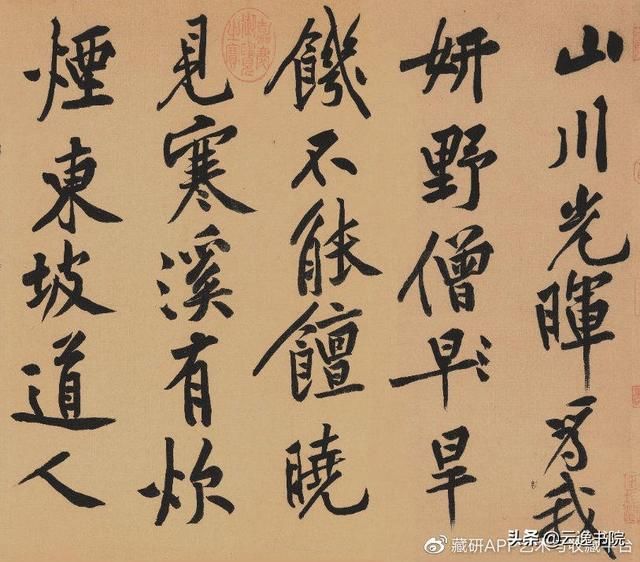 山川光暉為我
妍野僧早旱
饑不能饘曉
見寒溪有炊
煙東坡道人
嘉慶御覽之寶
头条 @云逸书院
藏研APP艺术与收藏平台